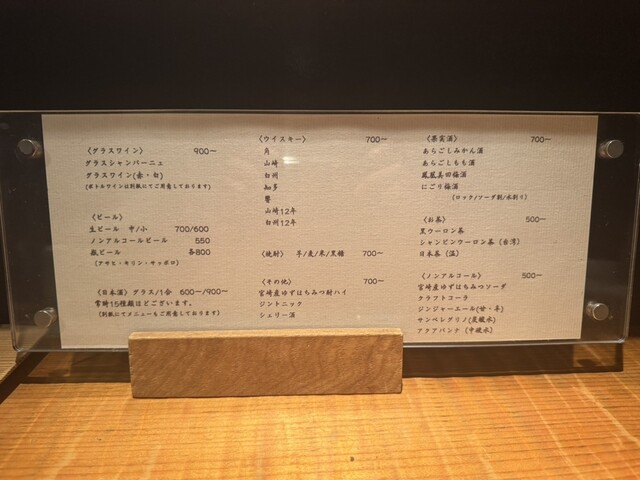 〈グラスワイン〉 900〜
グラスシャンパーニュ
グラスワイン(赤・白)
(ボトルワインは別紙にてご用意しております)
〈ビール〉
生ビール 中/小 700/600
ノンアルコールビール 550
瓶ビール 各800
(アサヒ・キリン・サッポロ)
〈日本酒〉グラス/1合 600〜/900〜
常時15種類ほどございます。
(別紙にてメニューもご用意しております)
〈ウイスキー〉 700〜
角
山崎
白州
知多
響
山崎12年
白州12年
〈焼酎〉 芋/麦/米/黒糖 700〜
〈その他〉 700〜
宮崎産ゆずはちみつ酎ハイ
ジントニック
シェリー酒
〈果実酒〉 700〜
あらごしみかん酒
あらごしもも酒
鳳凰美田梅酒
にごり梅酒
(ロック/ソーダ割/水割り)
〈お茶〉 500〜
黒ウーロン茶
シャンピンウーロン茶(台湾)
日本茶(温)
〈ノンアルコール〉 500〜
宮崎産ゆずはちみつソーダ
クラフトコーラ
ジンジャーエール(甘・辛)
サンペレグリノ(炭酸水)
アクアパンナ(中硬水)